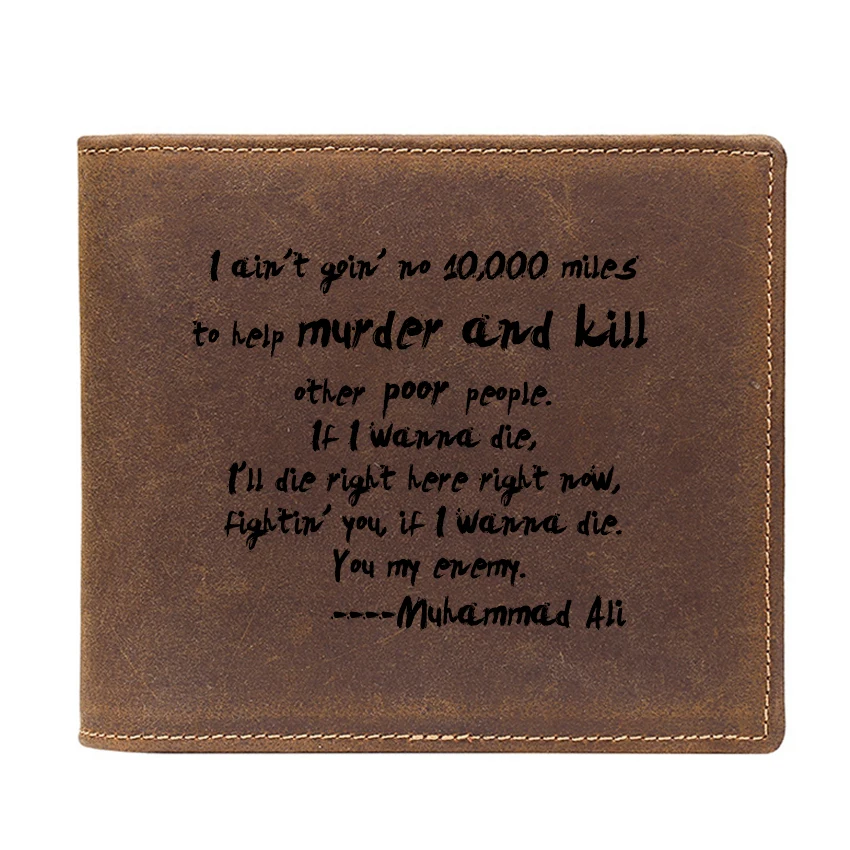 I ain't goin' no 10,000 miles
to help murder and kill
other poor people.
If I wanna die,
I'll die right here right now,
fightin' you, if I wanna die.
You my enemy.
----Muhammad Ali